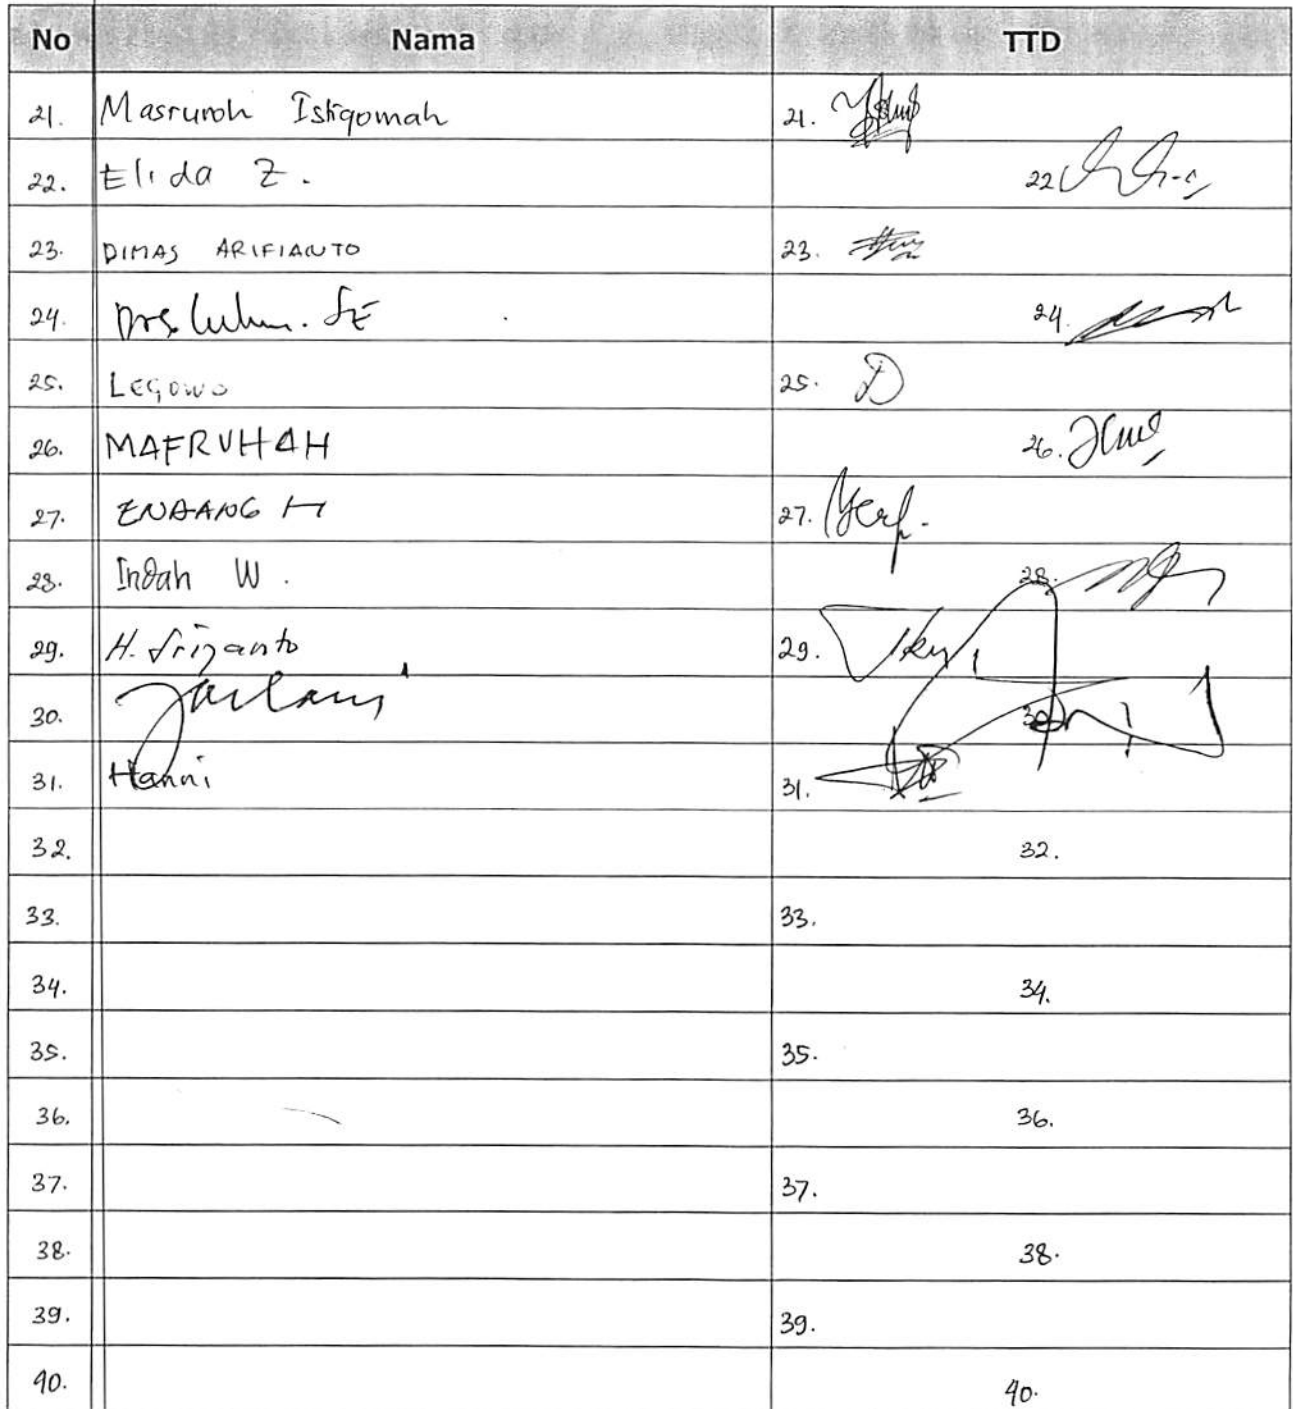 No Nama TTD
21. Masruroh Istiqomah 21.
22. Elida Z. 22
23. DIMAS ARIFIANTO 23.
24. Drs. SE 24.
25. LEGOWO 25.
26. MAFRUHAH 26.
27. ENDANG H 27.
28. Indah W. 28.
29. H. Sriyanto 29.
30. 30
31. Hanni 31.
32. 32.
33. 33.
34. 34.
35. 35.
36. 36.
37. 37.
38. 38.
39. 39.
40. 40.